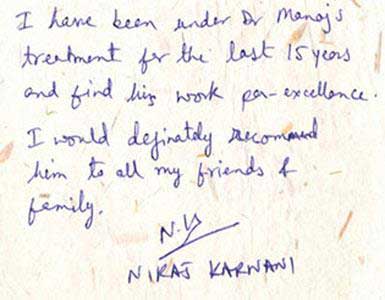 I have been under Dr Manoj's
treatment for the last 15 years
and find his work par-excellance.
I would definately recommend
him to all my friends &
family.
NIRAJ KARWANI